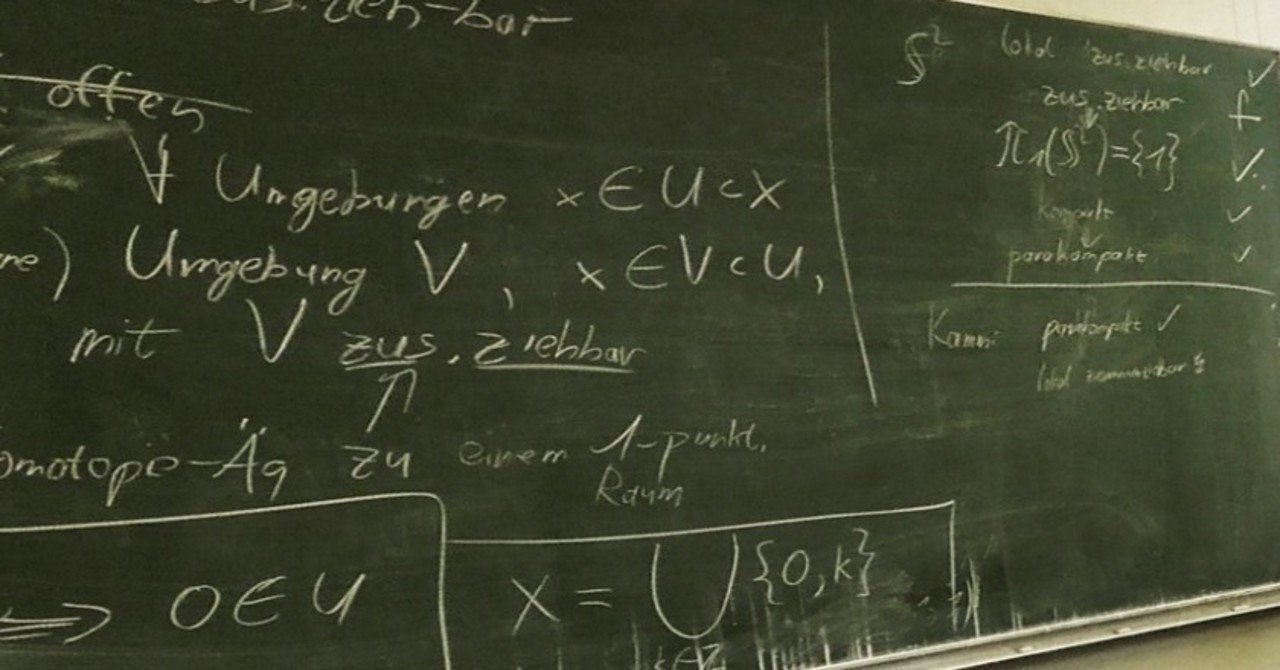 zus.zieh-bar
offen
∀ Umgebungen x ∈ U ⊂ X
Umgebung V, x ∈ V ⊂ U,
mit V zus.ziehbar
⇑
omotopie-Äq zu einem 1-punkt.
Raum
⟺ 0 ∈ U
X = ⋃ {0, k}
k ∈ ℤ
S² lokal zus.ziehbar ✓
zus.ziehbar f
π₁(S²) = {1} ✓.
kompakt ✓
parakompakt ✓
Kamm: parakompakt ✓
lokal